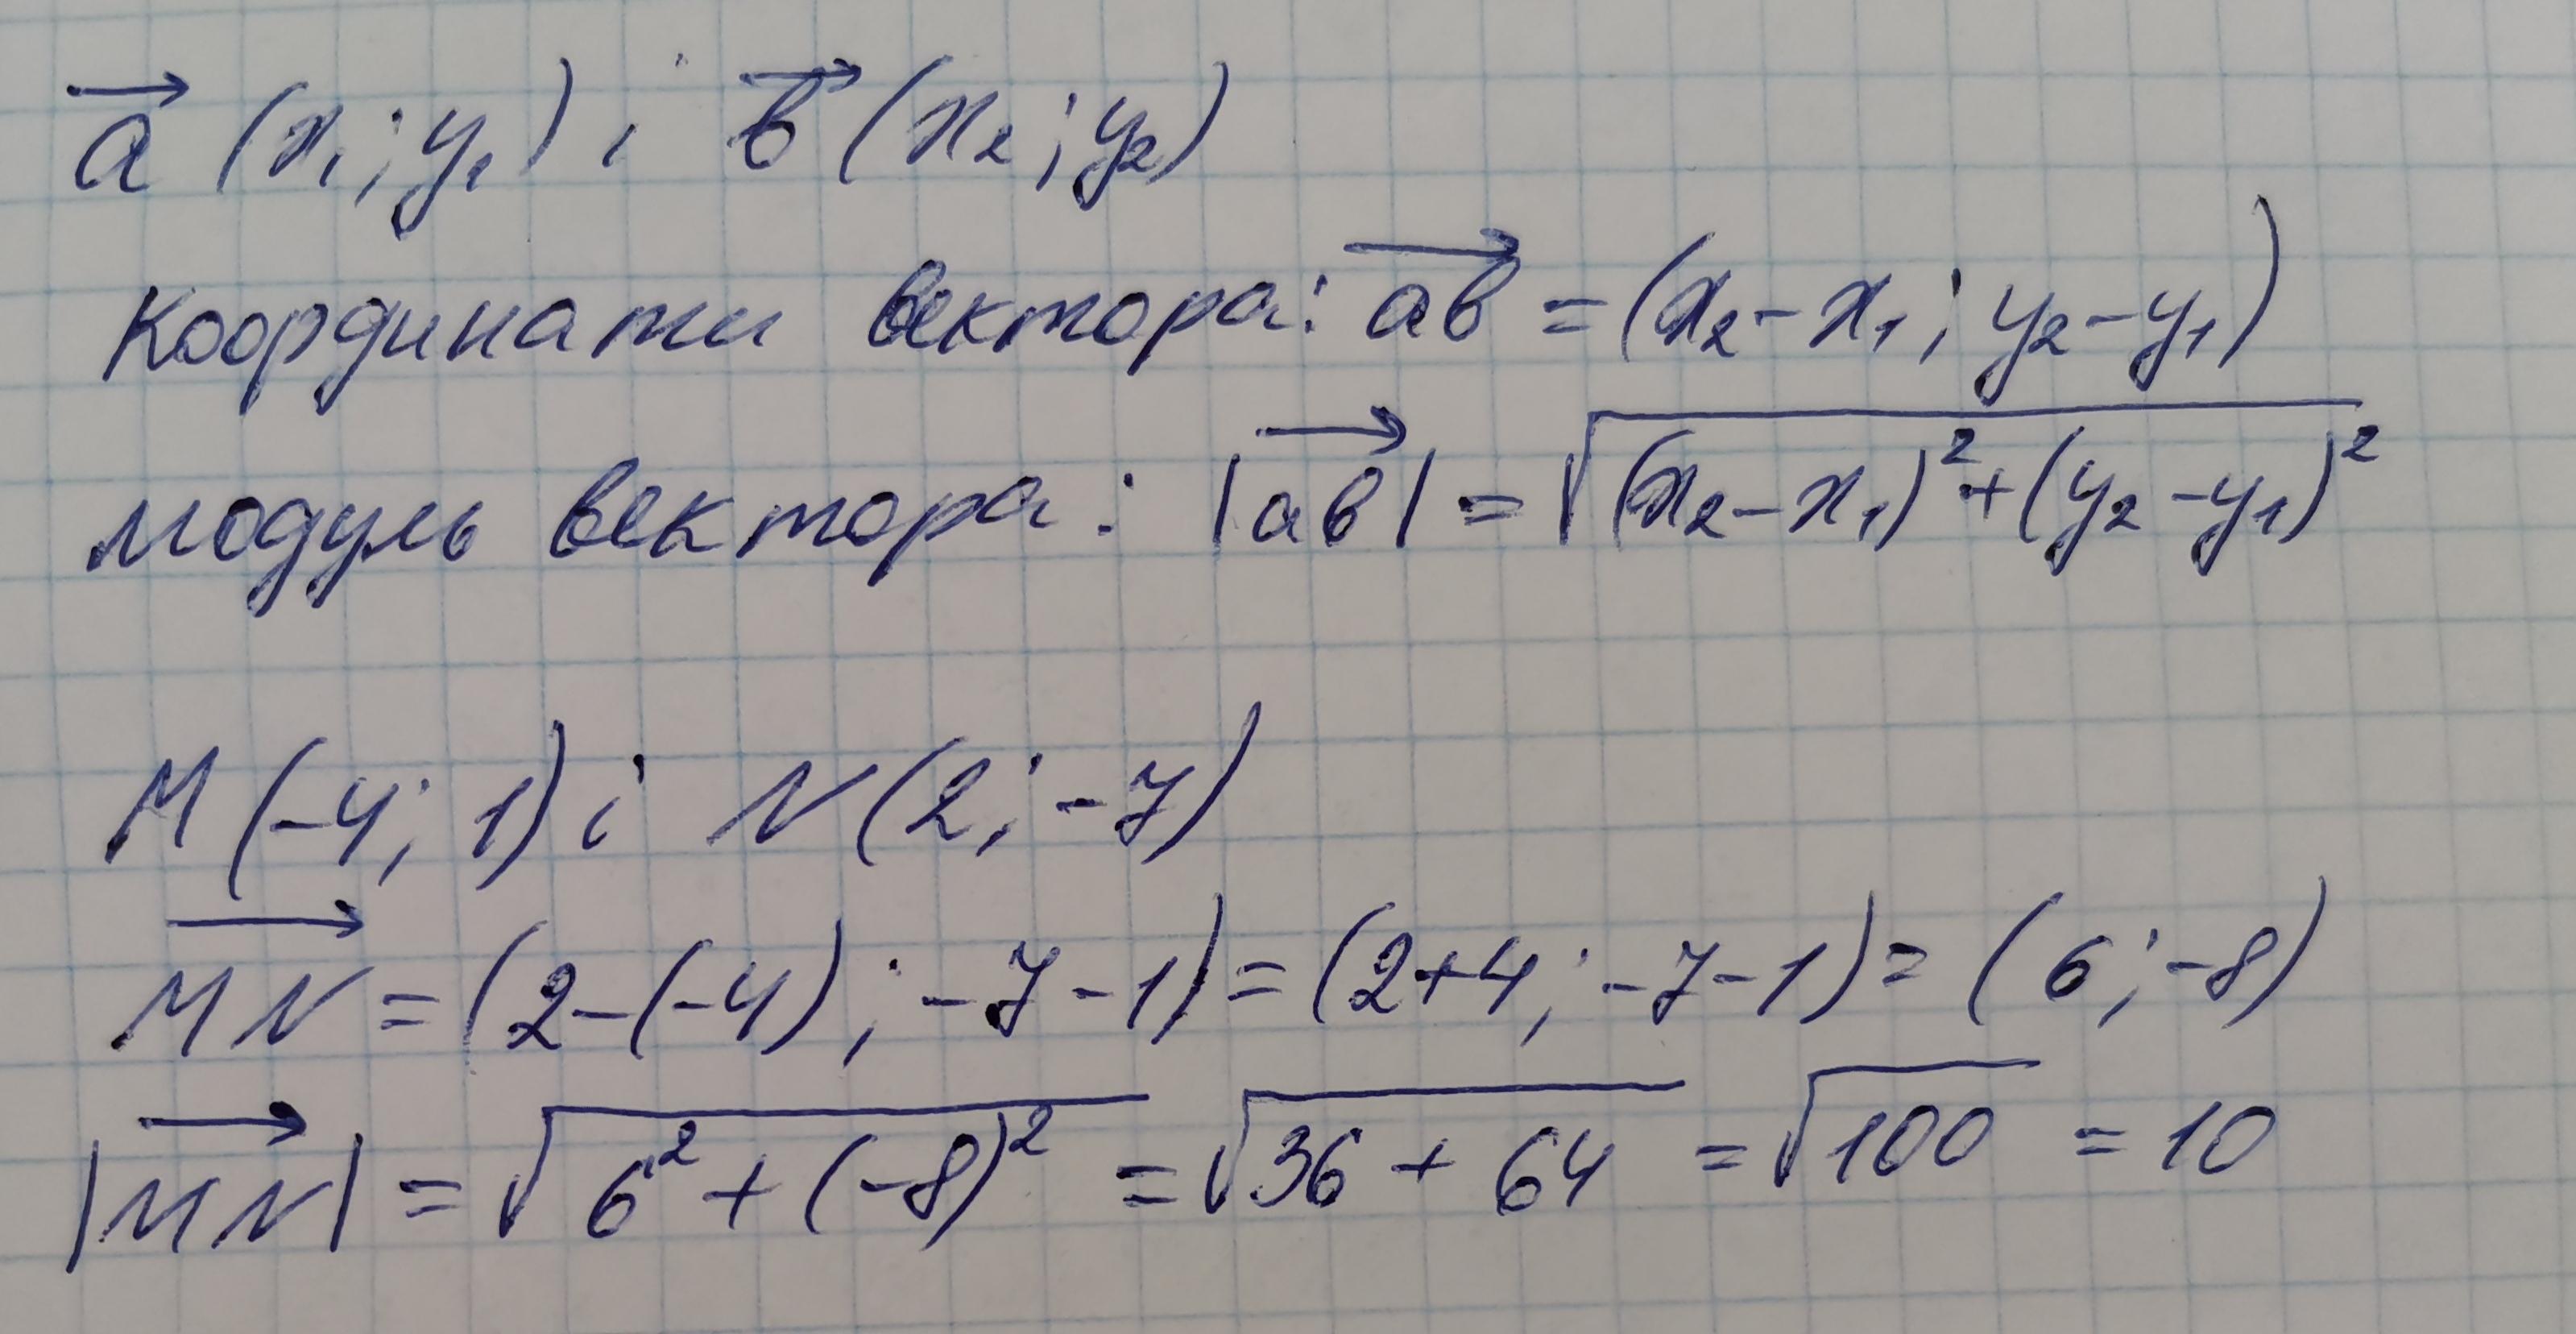 a⃗ (x₁; y₁) i b⃗ (x₂; y₂)
Координати вектора: ab⃗ = (x₂ - x₁; y₂ - y₁)
модуль вектора: |ab⃗| = √((x₂ - x₁)² + (y₂ - y₁)²)
M (-4; 1) i N (2; -7)
MN⃗ = (2-(-4); -7-1) = (2+4; -7-1) = (6; -8)
|MN⃗| = √(6² + (-8)²) = √(36 + 64) = √100 = 10